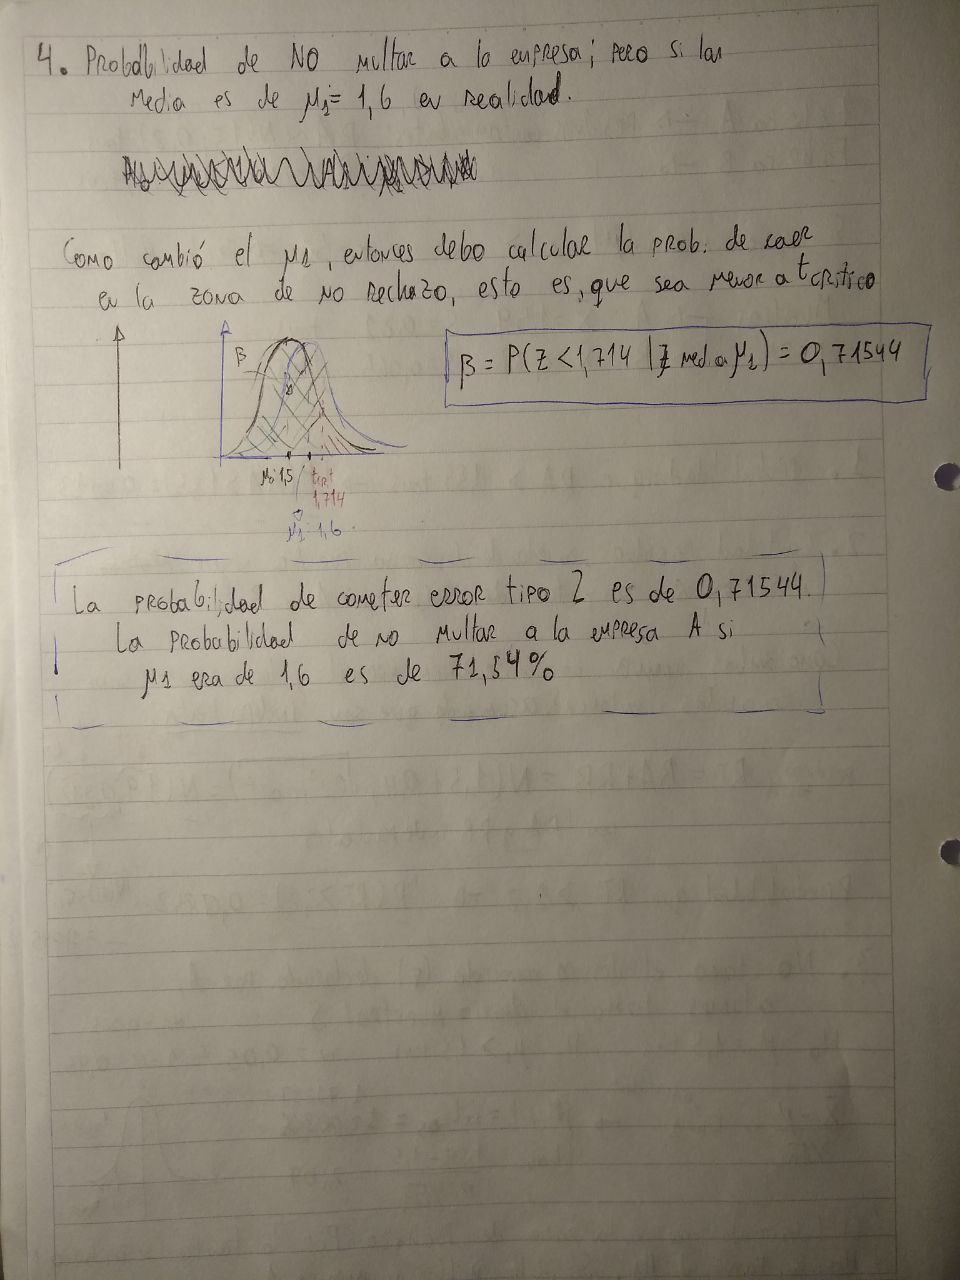 4. Probabilidad de NO multar a la empresa; pero si las
media es de μ1 = 1,6 en realidad.
Como cambió el μ1, entonces debo calcular la prob. de caer
en la zona de no rechazo, esto es, que sea menor a t crítico
β
β = P(Z < 1,714 | Z med a μ1) = 0,71544
μ0: 1,5
tcrit
1,714
μ1 1,6
La probabilidad de cometer error tipo 2 es de 0,71544.
La probabilidad de no multar a la empresa A si
μ1 era de 1,6 es de 71,54%